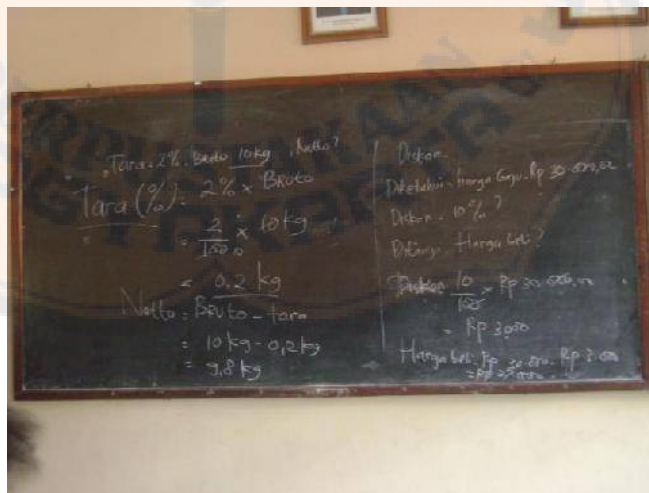 Tara = 2%. Bruto 10kg, Netto?
Tara (%) = 2% x Bruto
= 2/100 x 10 kg
= 0,2 kg
Netto = Bruto - tara
= 10 kg - 0,2 kg
= 9,8 kg
Diskon
Diketahui = harga baju = Rp 30.000,00
Diskon = 10%?
Ditanya Harga beli?
Diskon = 10/100 x Rp 30.000,00
= Rp 3.000
Harga beli = Rp 30.000 - Rp 3.000